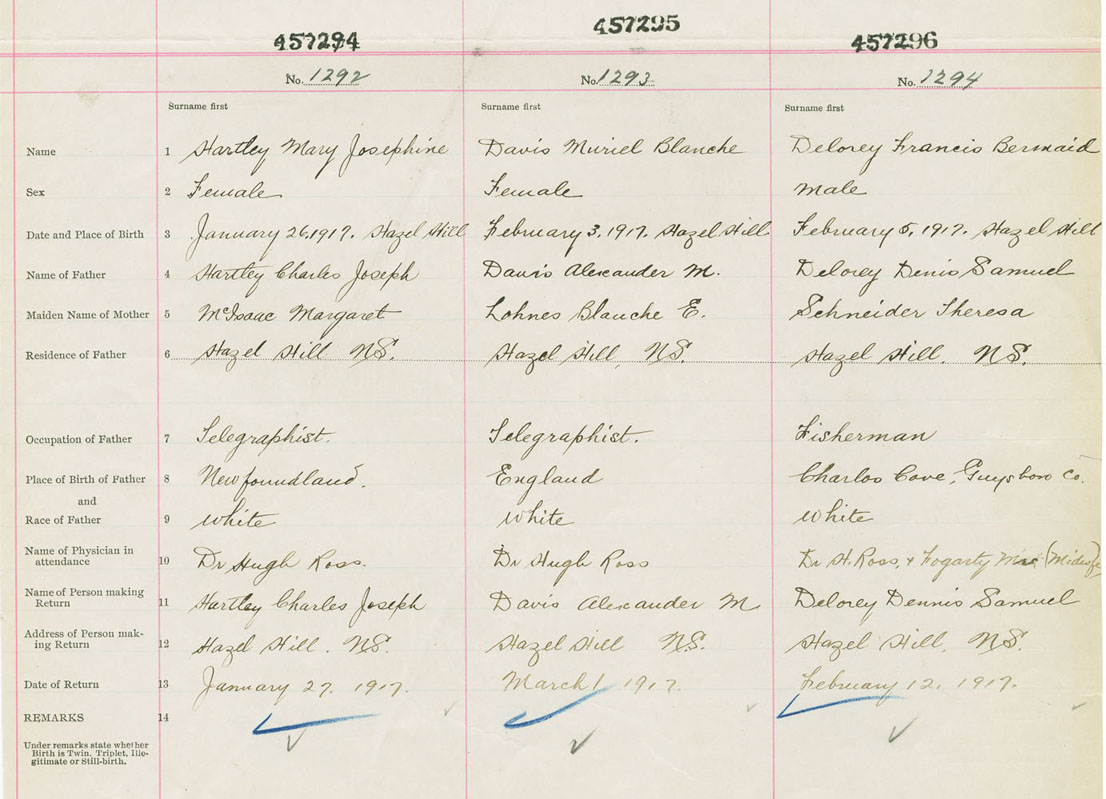 457294 457295 457296
No. 1292 No. 1293 No. 1294
Surname first Surname first Surname first
Name 1 Hartley Mary Josephine Davis Muriel Blanche Delorey Francis Bernaid
Sex 2 Female Female Male
Date and Place of Birth 3 January 26, 1917. Hazel Hill February 3, 1917. Hazel Hill February 5, 1917. Hazel Hill
Name of Father 4 Hartley Charles Joseph Davis Alexander M. Delorey Denis Samuel
Maiden Name of Mother 5 McIsaac Margaret Lohnes Blanche E. Schneider Theresa
Residence of Father 6 Hazel Hill NS. Hazel Hill, NS. Hazel Hill, NS.
Occupation of Father 7 Telegraphist. Telegraphist. Fisherman
Place of Birth of Father 8 Newfoundland. England Charlos Cove, Guysboro Co.
and
Race of Father 9 White White White
Name of Physician in
attendance 10 Dr Hugh Ross. Dr Hugh Ross Dr H. Ross, + Fogarty Mrs (Midwife)
Name of Person making
Return 11 Hartley Charles Joseph Davis Alexander M. Delorey Dennis Samuel
Address of Person mak-
ing Return 12 Hazel Hill. NS. Hazel Hill NS. Hazel Hill, NS.
Date of Return 13 January 27, 1917. March 1 1917. February 12, 1917.
REMARKS 14
Under remarks state whether
Birth is Twin, Triplet, Ille-
gitimate or Still-birth.